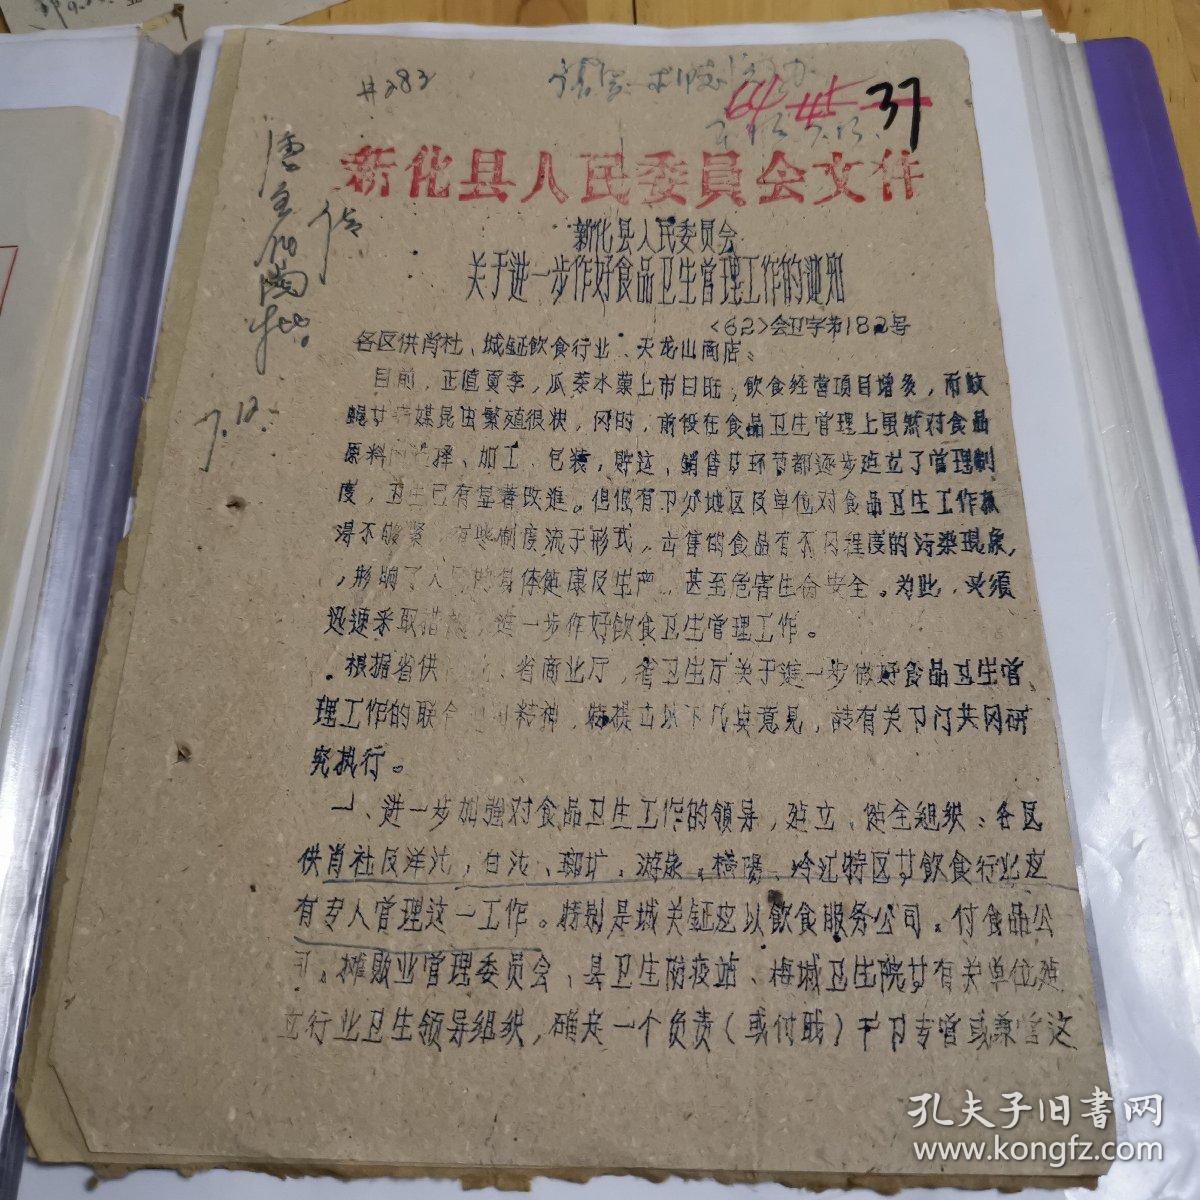 #282
37
64 45
7.13.
新化县人民委員会文件
新化县人民委员会
关于进一步作好食品卫生管理工作的通知
<62>会卫字第182号
各区供肖社、城鈺飲食行业、天龙山商店:
目前,正值夏季,瓜菜水菓上市日旺,飲食经营项目增多,而蚊
蝇廿 媒昆虫繁殖很快,同时,前段在食品卫生管理上虽然对食品
原料 选择、加工、包装,貯运、銷售廿环节都逐步建立了管理制
度,卫生已有显著改進。但仍有卩分地区及单位对食品卫生工作抓
得不够緊,有些制度流于形式,出售的食品有不同程度的汚染現象,
,影响了人民的身体健康及生产,甚至危害生命安全。为此,必須
迅速采取措施,進一步作好飲食卫生管理工作。
根据省供 、省商业厅,省卫生厅关于進一步做好食品卫生管
理工作的联合通知精神,特提出以下几点意見,請有关卩门共同研
究执行。
一、进一步加強对食品卫生工作的領导,建立、健全組织:各区
供肖社及洋沱,白沱、 矿,游家,横陽、冷江特区廿飲食行业应
有专人管理这一工作。特别是城关鈺应以飲食服务公司,付食品公
司,摊販业管理委员会、县卫生防疫站、梅城卫生院廿有关单位建
立行业卫生領导組织,确定一个负责(或付职)干卩专管或兼管这
7.12.
孔夫子旧书网
www.kongfz.com